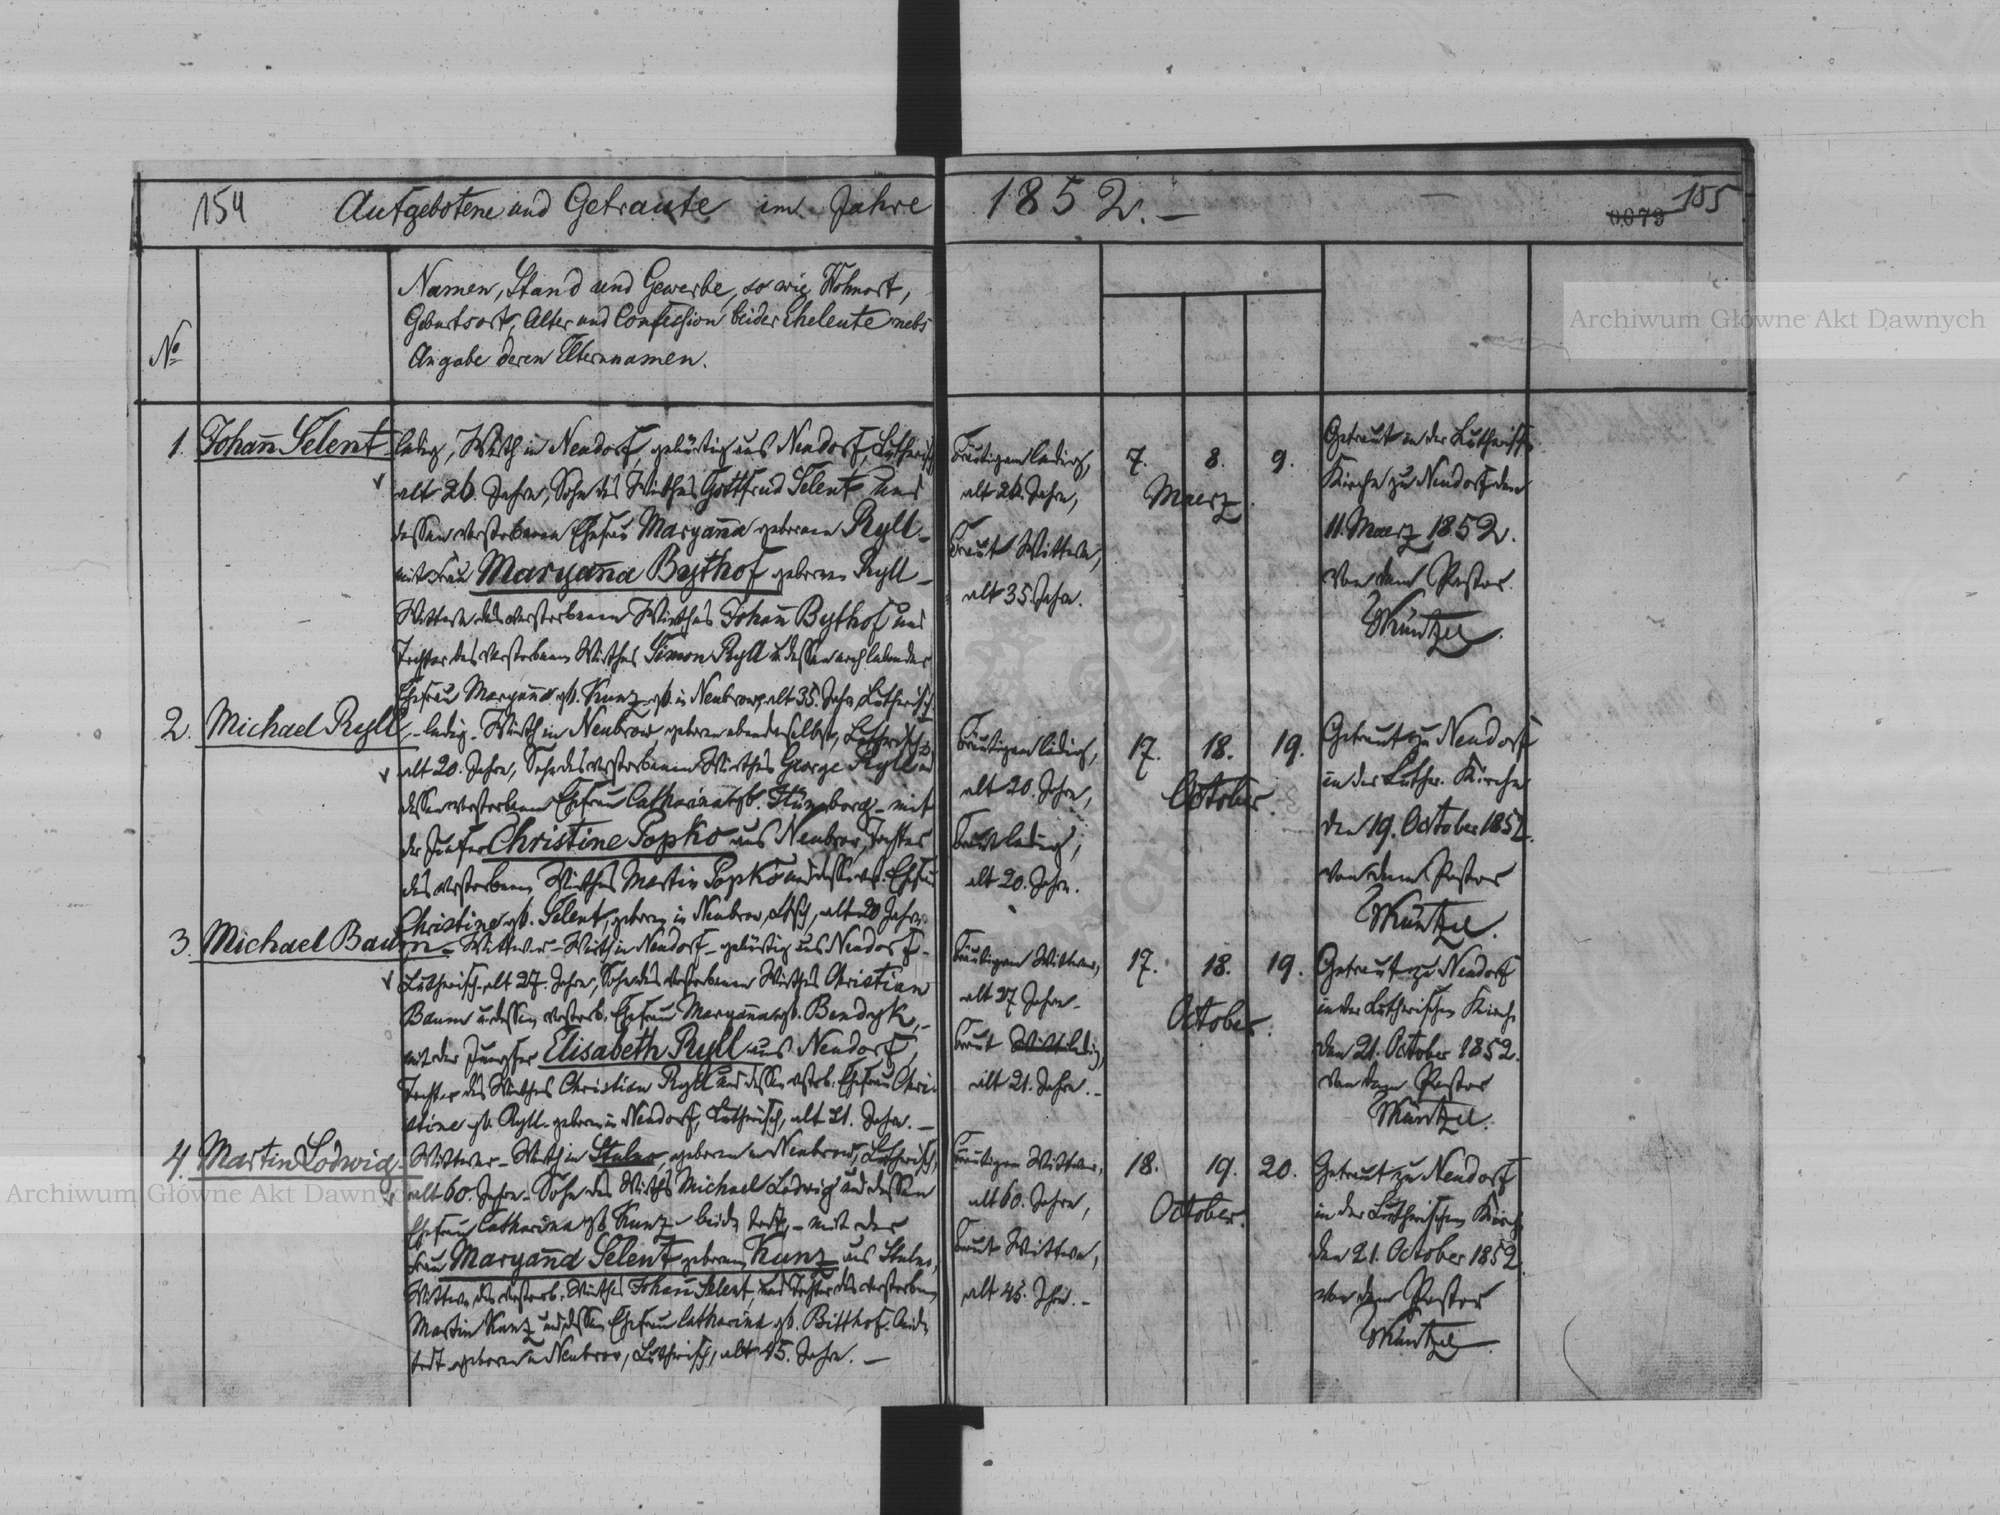 154 Aufgebotene und Getraute im Jahre 1852. — 155
0079
Archiwum Główne Akt Dawnych
№
Namen, Stand und Gewerbe, so wie Wohnort,
Geburtsort, Alter und Confession beider Eheleute nebst
Angabe deren Elternnamen.
1. Johann Selent
ledig, Wirth in Neudorf, gebürtig aus Neudorf, Lutherisch
alt 26. Jahre, Sohn des Wirthes Gottfried Selent und
dessen verstorbenen Ehefrau Maryanna geborenen Ryll –
mit Frau Maryanna Bythof geborenen Ryll –
Wittwe des verstorbenen Wirthes Johann Bythof und
Tochter des verstorbenen Wirthes Simon Ryll u. dessen noch lebender
Ehefrau Maryanna gb. Kunz gb. in Neubrow alt 35. Jahr, Lutherisch
Bräutigam ledig,
alt 26. Jahre,
Braut Wittwe,
alt 35. Jahre.
7. 8. 9.
Maerz.
Getraut in der Lutherisch.
Kirche zu Neudorf den
11. Maerz 1852.
von dem Pastor
Müntzel.
2. Michael Ryll
– ledig – Wirth in Neubrow geboren ebendaselbst, Lutherisch
alt 20. Jahre, Sohn des verstorbenen Wirthes George Ryll und
dessen verstorbenen Ehefrau Catharina gb. – mit
der Junfer Christine Popko aus Neubrow, Tochter
des verstorbenen Wirthes Martin Popko und dessen verst. Ehefrau
Christine gb. Selent, geboren in Neubrow, alt 20 Jahre.
Bräutigam ledig,
alt 20. Jahre,
Braut ledig,
alt 20. Jahre.
17. 18. 19.
October.
Getraut zu Neudorf
in der Luther. Kirche
den 19. October 1852.
von dem Pastor
Müntzel.
3. Michael Baum
– Wittwer – Wirth in Neudorf – gebürtig aus Neudorf –
Lutherisch, alt 27. Jahre, Sohn des verstorbenen Wirthes Christian
Baum u. dessen verstorb. Ehefrau Maryanna gb. Bendyk, –
mit der Jungfer Elisabeth Ryll aus Neudorf,
Tochter des Wirthes Christian Ryll und dessen verstorb. Ehefrau Chri-
stine gb. Ryll – geboren in Neudorf, Lutherisch, alt 21. Jahre. —
Bräutigam Wittwer,
alt 27 Jahre –
Braut ledig,
alt 21. Jahre. –
17. 18. 19.
October.
Getraut zu Neudorf
in der Lutherischen Kirche
den 21. October 1852.
von dem Pastor
Müntzel.
4. Martin Lodwig
Wittwer – Wirth in geboren in Neubrow, Lutherisch,
alt 60. Jahre – Sohn des Wirths Michael Lodwig und dessen
Ehefrau Catharina gb. Kunz – beide todt, – mit der
Frau Maryanna Selent geborenen Kunz aus
Wittwe des verstorb. Wirthes Johann Selent, und Tochter des verstorbenen
Martin Kunz und dessen Ehefrau Catharina gb. Bitthof. Beide
todt geboren in Neubrow, Lutherisch, alt 45. Jahre. —
Bräutigam Wittwer,
alt 60. Jahre,
Braut Wittwe,
alt 45. Jahre. –
18. 19. 20.
October.
Getraut zu Neudorf
in der Lutherischen Kirche
den 21. October 1852.
von dem Pastor
Müntzel
Archiwum Główne Akt Dawnych